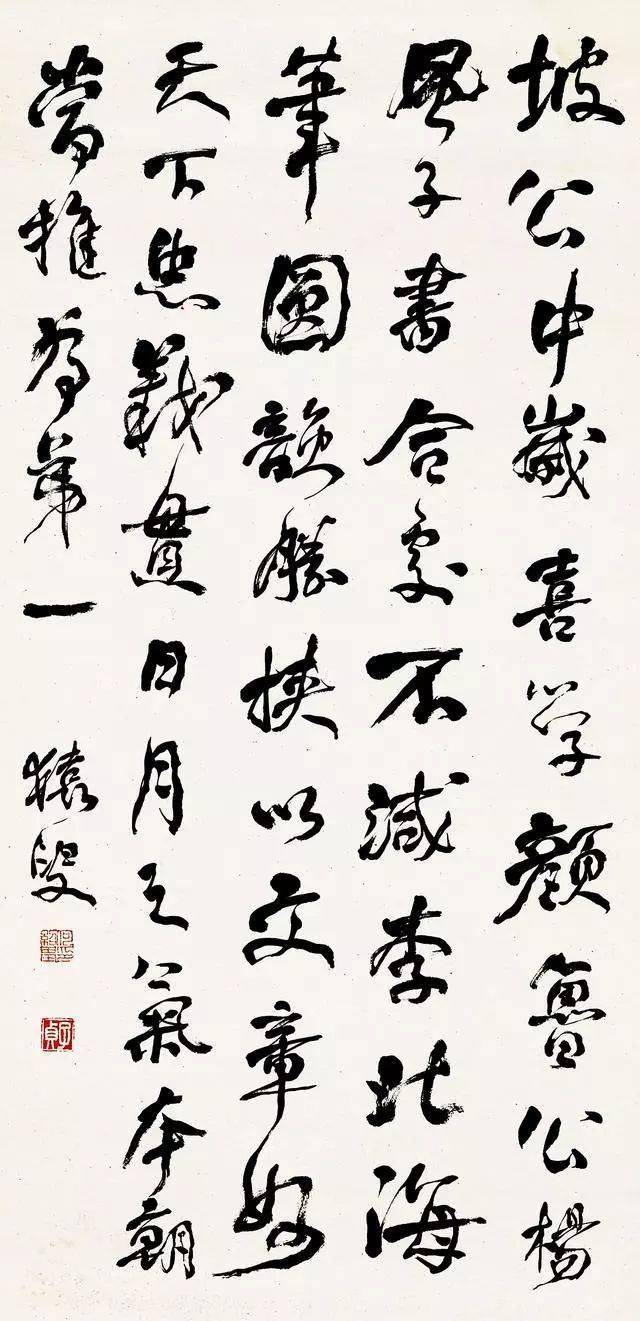 坡公中歲喜學顏魯公楊
風子書合處不減李北海
筆圓韻勝挾以文章妙
天下忠義貫日月之氣本朝
當推為第一
猨叟
何紹基印
子貞